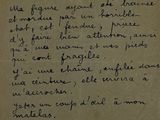 Ma figure ayant été brûlée
et mordue par un horrible
robot, est fendue, prière
d'y faire bien attention, ainsi
qu'à mes mains et mes pieds
qui sont fragiles.
j'ai une chaîne, enfilée dans
ma ceinture, elle servira à
m'accrocher.
Jeter un coup d'œil à mon
matelas.